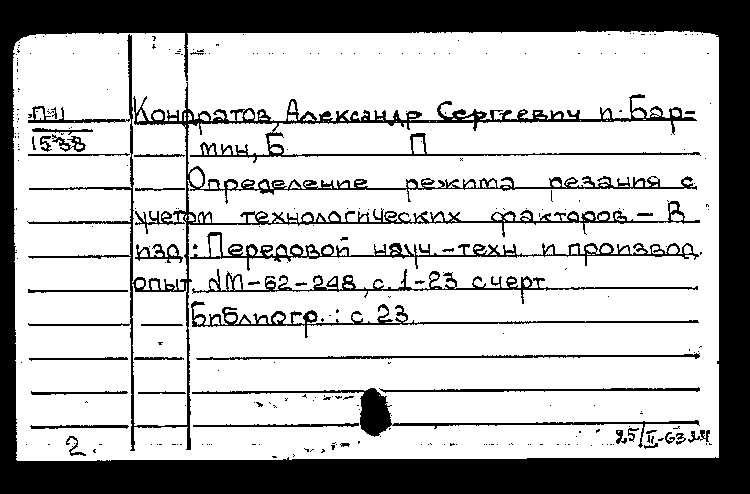 П-11
15338
Кондратов, Александр Сергеевич и Бар-
мин, Б П
Определение режима резания с
учетом технологических факторов. – В
изд.: Передовой науч.-техн. и производ.
опыт. №М-62-248, с. 1-23 с черт.
Библиогр.: с. 23.
2.
25/II-63